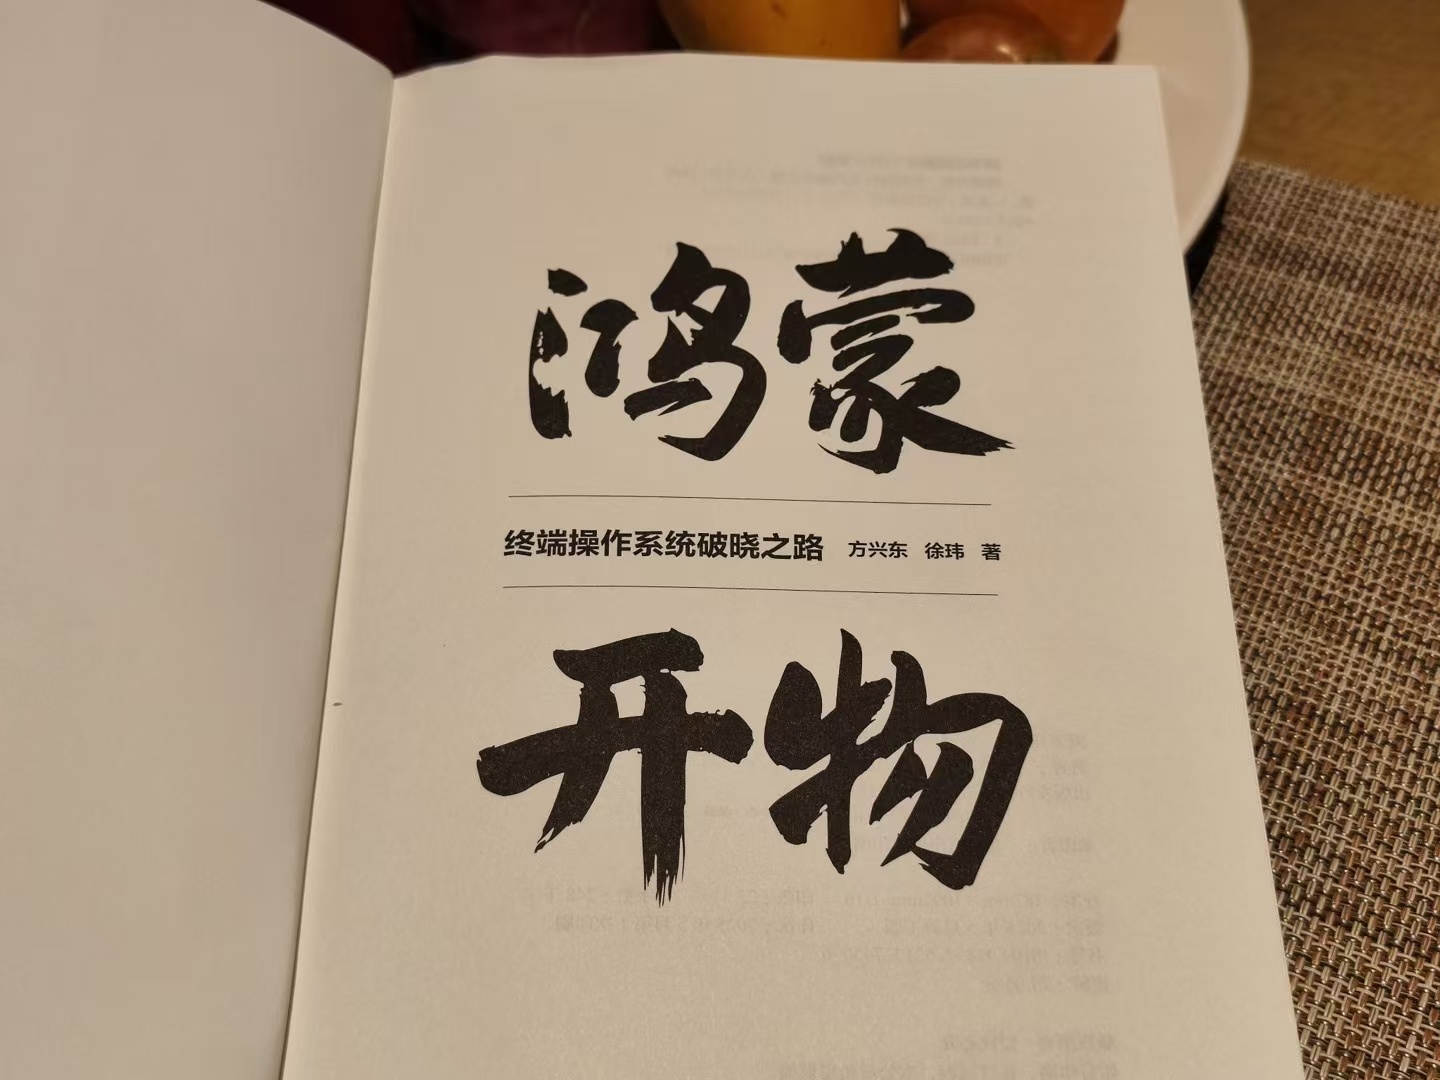 鸿蒙
终端操作系统破晓之路 方兴东 徐玮 著
开物